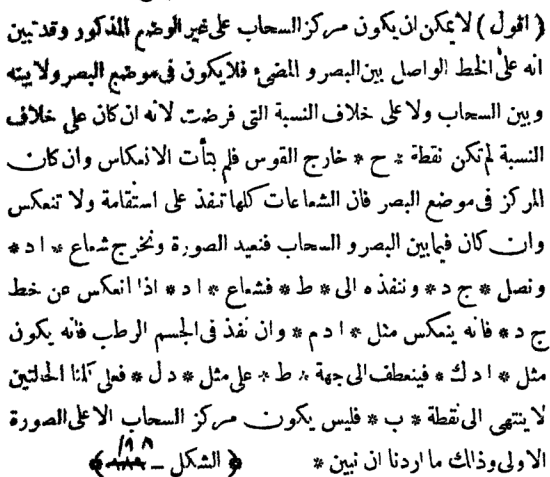 ( اقول ) لا يمكن ان يكون مركز السحاب على غير الوضع المذكور وقد تبين
انه على الخط الواصل بين البصر و المضئ فلا يكون فى موضع البصر ولا بينه
وبين السحاب ولا على خلاف النسبة التى فرضت لانه ان كان على خلاف
النسبة لم تكن نقطة * ح * خارج القوس فلم يتأت الانعكاس وان كان
المركز فى موضع البصر فان الشعاعات كلها تنفذ على استقامة ولا تنعكس
وان كان فيما بين البصر و السحاب فنعيد الصورة ونخرج شعاع * ا د *
ونصل * ج د * وننفذه الى * ط * فشعاع * ا د * اذا انعكس عن خط
ج د * فانه ينعكس مثل * ا د م * وان نفذ فى الجسم الرطب فانه يكون
مثل * ا د ك * فينعطف الى جهة * ط * على مثل * د ل * فعلى كلتا الحالتين
لا ينتهى الى نقطة * ب * فليس يكون مركز السحاب الا على الصورة
الاولى وذالك ما اردنا ان نبين * ﴿ الشكل – ١٩٨ ﴾